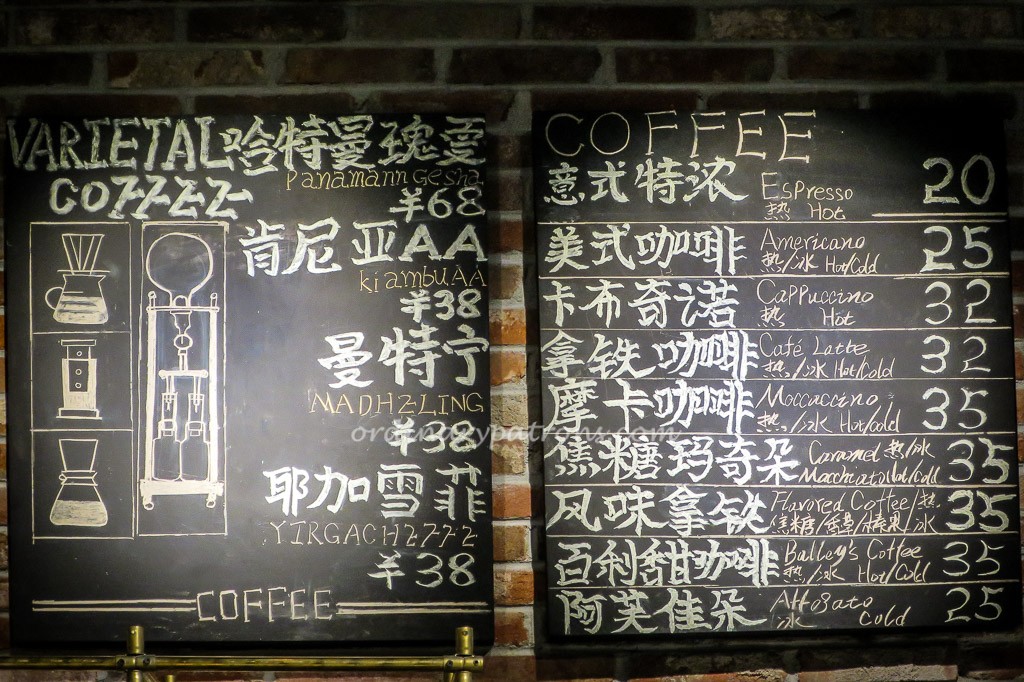 VARIETAL 哈特曼瑰夏
COFFEE Panamann Gesha
¥68
肯尼亚AA
kiambuAA
¥38
曼特宁
MADHELING
¥38
耶加雪菲
YIRGACHEFFE
¥38
COFFEE
COFFEE
意式特浓 Espresso 20
热 Hot
美式咖啡 Americano 25
热/冰 Hot/Cold
卡布奇诺 Cappuccino 32
热 Hot
拿铁咖啡 Café Latte 32
热/冰 Hot/Cold
摩卡咖啡 Moccaccino 35
热/冰 Hot/Cold
焦糖玛奇朵 Caramel 热/冰 35
Macchiato Hot/Cold
风味拿铁 Flavored Coffee/热 35
焦糖/香草/榛果/冰
百利甜咖啡 Bailey's Coffee 35
热/冰 Hot/Cold
阿芙佳朵 Affogato 25
冰 Cold
ordinarypatrons.com